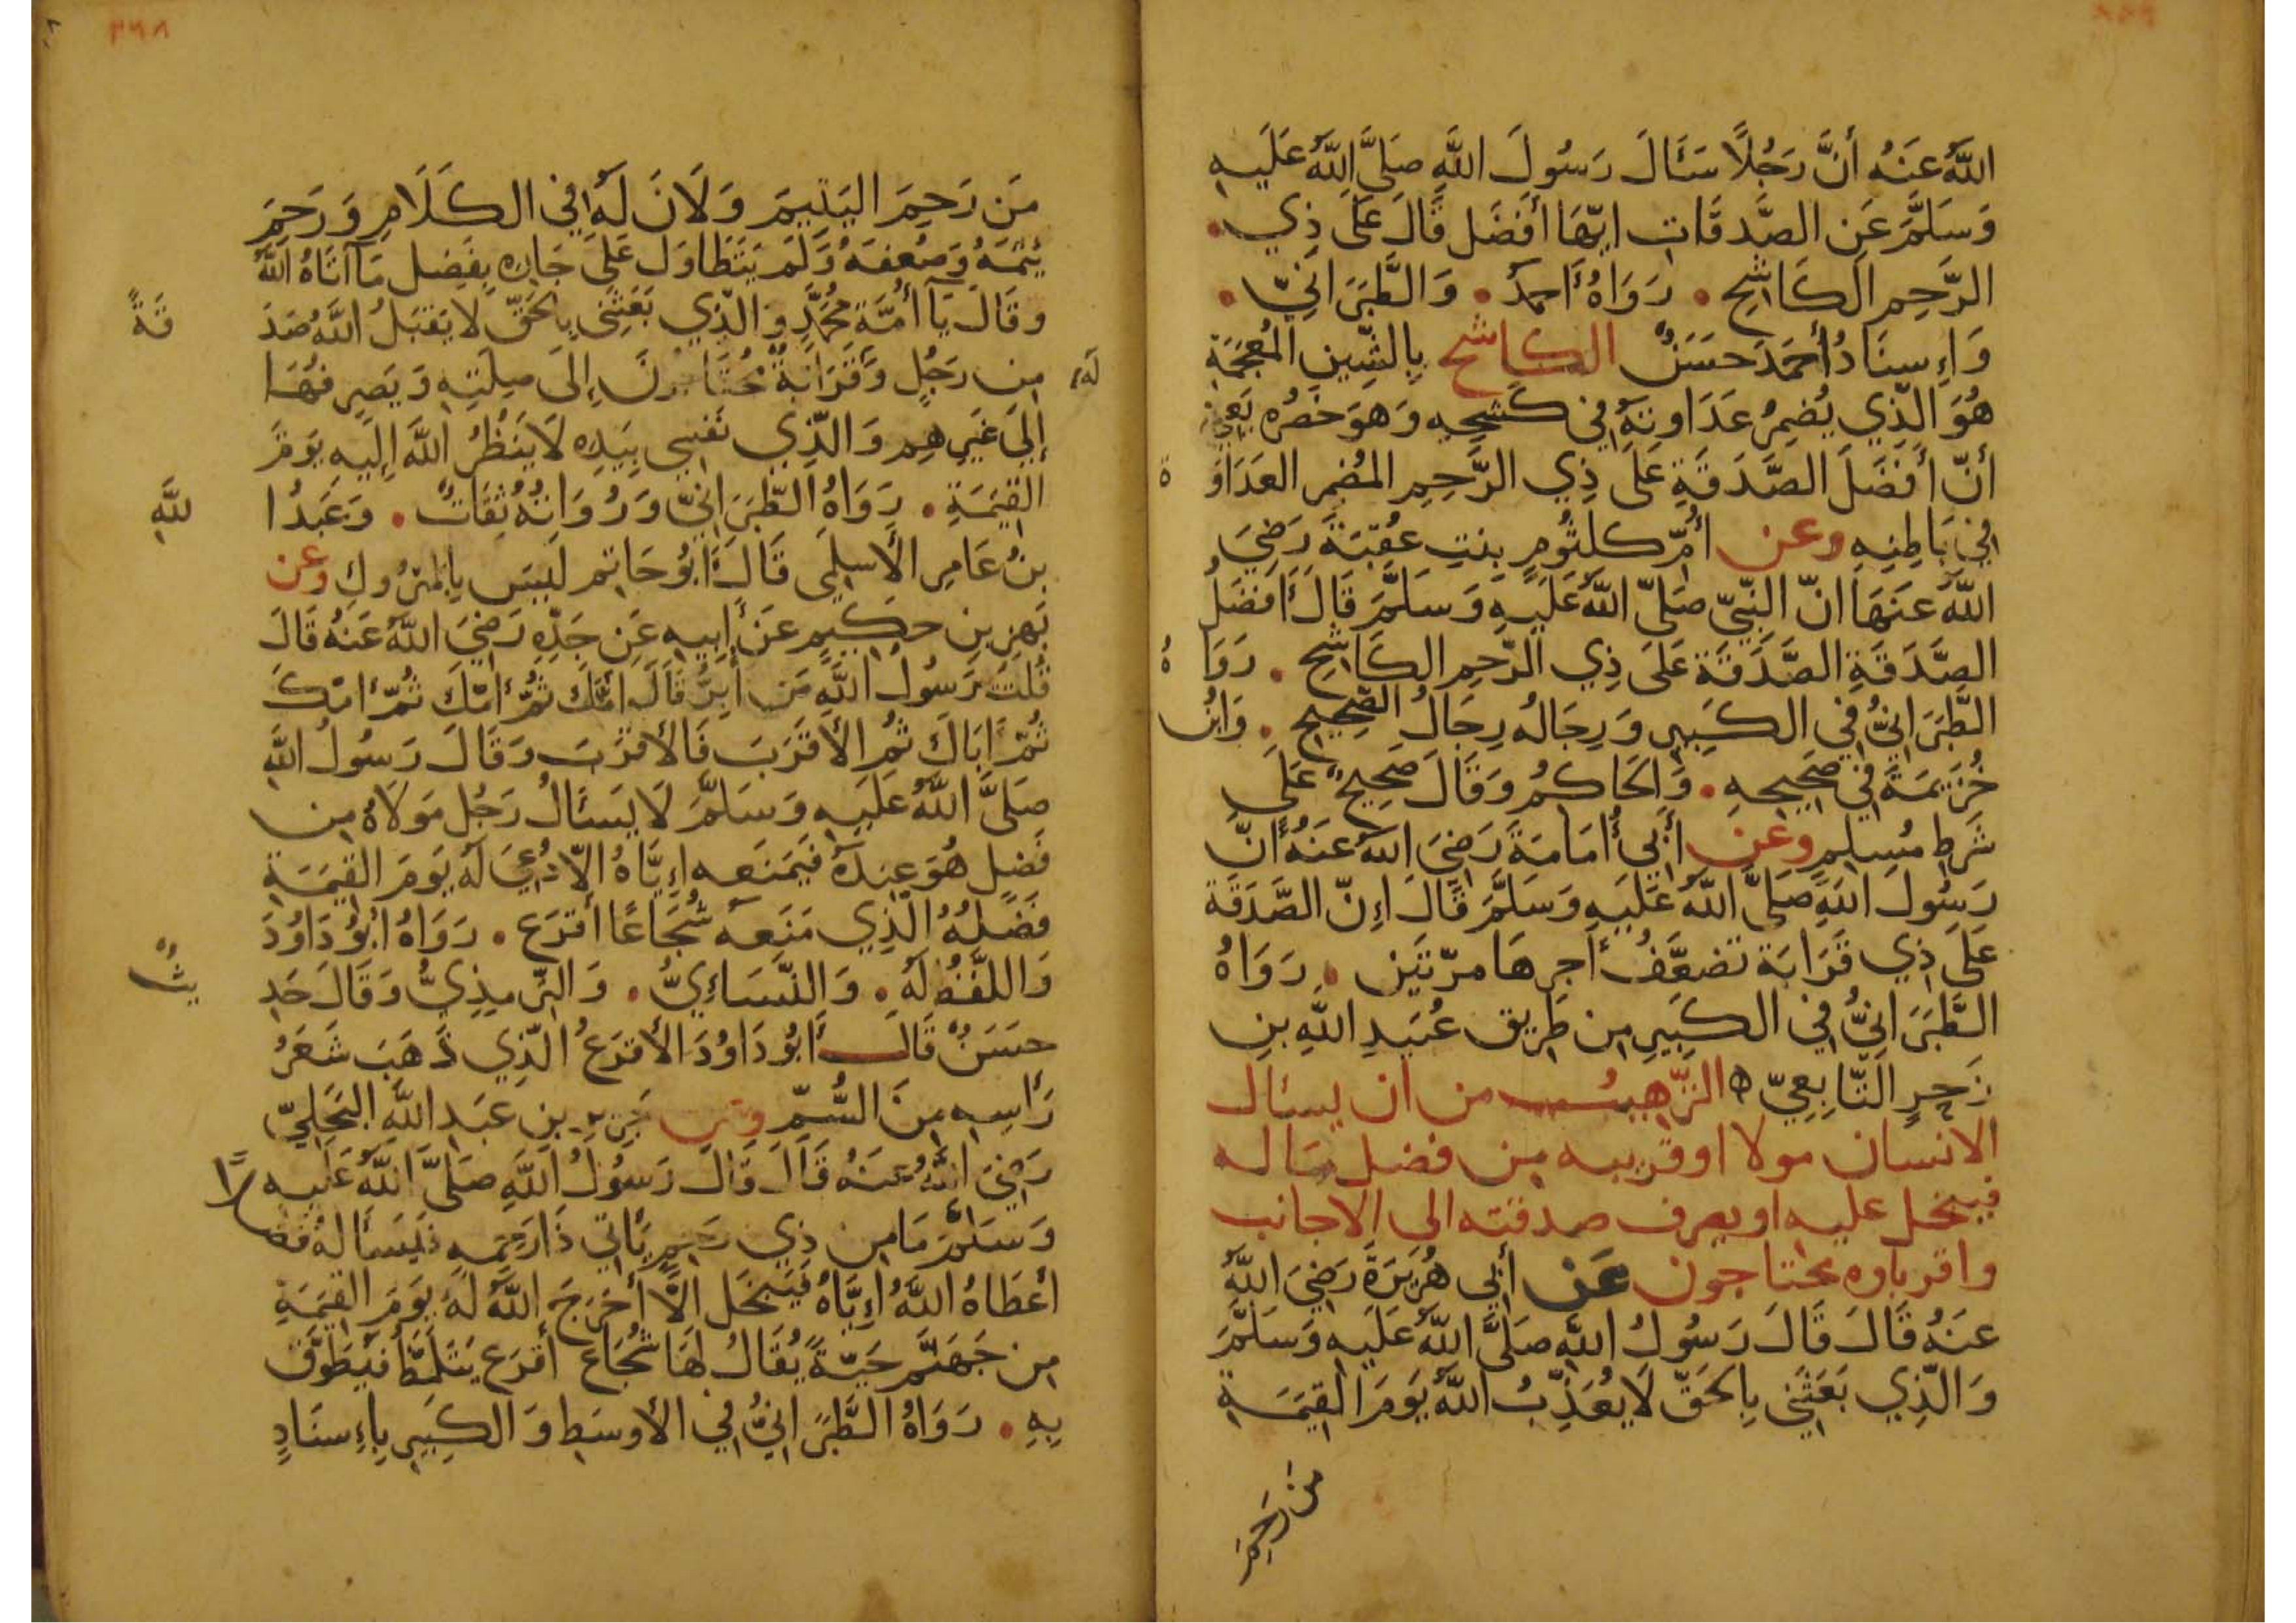 اللَّهُ عَنْهُ أَنَّ رَجُلًا سَئَالَ رَسُولَ اللَّهِ صَلَّى اللَّهُ عَلَيْهِ
وَسَلَّمَ عَنِ الصَّدَقَاتِ ايّهَا أَفْضَل قَالَ عَلَى ذِي .
الرَّحِمِ الكَاشِحِ . رَوَاهُ أَحمَدُ . وَالطَّبَرَانِيّ .
وَاِسنَادُ أَحمَدَ حَسَنٌ الكاشح بِالشِّينِ المُعجَمَةِ
هُوَ الَّذِي يُضمِرُ عَدَاوتَهُ فِي كَشحِهِ وَهوَ خَصْرُه يَعنِي
أَنّ أَفضَلَ الصَّدَقَةِ عَلَى ذِي الرَّحِمِ المُضمِر العَدَاوَ ة
فِي بَاطِنِهِ وعن أُمّ كلثُومٍ بِنتِ عُقبَةَ رَضِيَ
اللَّهُ عَنهَا انّ النَّبِيّ صَلَّى اللَّهُ عَلَيهِ وَسَلَّمَ قَالَ أَفضَلُ
الصَّدَقَةِ الصَّدَقَة عَلَى ذِي الرَّحِمِ الكَاشِحِ . رَوَا هُ
الطَّبَرَانِيُّ فِي الكَبِيرِ وَرِجَالُه رِجَالُ الصَّحِيحِ . وَابْنُ
خُزَيمَةَ فِي صَحِيحِهِ . وَالحَاكِمُ وَقَالَ صَحِيحٌ عَلَى
شَرطِ مُسلِمٍ وعن أَبِي أُمَامَةَ رَضِيَ اللَّهُ عَنهُ أَنَّ
رَسُولَ اللَّهِ صَلَّى اللَّهُ عَلَيهِ وَسَلَّمَ قَالَ اِنّ الصَّدَقَةَ
عَلَى ذِي قَرَابَة تضعَّفُ أَجرهَا مرّتَين . رَوَاهُ
الطَّبَرَانِيُّ فِي الكَبِيرِ مِن طَرِيق عُبَيدِ اللَّهِ بنِ
زَحرٍ التَّابِعِيّ ه الترهيب من ان يسئال
الانسان مولا او قريبه من فضل ماله
فيبخل عليه او يصرف صدقته الى الاجانب
واقرباوه محتاجون عَن أَبِي هُرَيرَةَ رَضِيَ اللَّهُ
عَنهُ قَالَ قَالَ رَسُولُ اللَّهِ صَلَّى اللَّهُ عَلَيهِ وَسَلَّمَ
وَالَّذِي بَعَثَنِي بِالحَقّ لَا يُعَذّبُ اللَّهُ يَومَ القِيمَةِ
من رحِمَ
مَن رَحِمَ اليَتِيمَ وَلَانَ لَهُ فِي الكَلَامِ وَرَحِمَ
يُتمَهُ وَضُعفَهُ وَلَم يَتَطَاوَل عَلَى جَارِه بِفَضل مَا آتَاهُ اللَّهُ
وَقَالَ يَا أُمَّةَ مُحَمَّدٍ وَالَّذِي بَعَثَنِي بِالحَقّ لَا يَقبَلُ اللَّهُ صَدَ قَةً
مِن رَجُلٍ وَلَهُ قَرَابَةٌ مُحتَاجُونَ اِلَى صِلَتِهِ وَيَصرِفهَا
إِلَى غَيرِهِم وَالَّذِي نَفسِي بِيَدِه لَا يَنظُرُ اللَّهُ اِلَيهِ يَومَ
القِيمَةِ . رَوَاهُ الطَّبَرَانِيّ وَرُوَاتُهُ ثِقَاتٌ . وَعَبدُ ا للَّهِ
بنُ عَامِرٍ الأَسلَمِي قَالَ أَبُو حَاتِم لَيسَ بِالمَترُوكِ وعن
بَهزِ بنِ حَكِيمٍ عَن أَبِيهِ عَن جَدِّهِ رَضِيَ اللَّهُ عَنهُ قَالَ
قُلتُ يَرَسُولَ اللَّهِ مَن أَبَرُّ قَالَ امّكَ ثُمَّ أُمّكَ ثُمّ أُمّكَ
ثُمّ أَبَاكَ ثُم الأَقرَبَ فَالأَقرَبَ وَقَالَ رَسُولُ اللَّهِ
صَلَّى اللَّهُ عَلَيهِ وَسَلَّمَ لَا يَسئَالُ رَجُل مَولَاهُ مِن
فَضلٍ هُوَ عِندَهُ فَيَمنَعه اِيَّاهُ الّا دُعِيَ لَهُ يَومَ القِيمَةِ
فَضلُهُ الَّذِي مَنَعهُ شُجَاعًا أَقرَع . رَوَاهُ أَبُو دَاوُدَ
وَاللَّفظُ لَهُ . وَالنَّسَاءِيُّ . وَالتِّرمِذِيُّ وَقَالَ حَدِ يثٌ
حَسَنٌ قَال أَبُو دَاوُدَ الأَقرَعُ الَّذِي ذَهَبَ شَعَرُ
رَأسِهِ مِنَ السُّمِّ وعن جَرِيرِ بنِ عَبدِ اللَّهِ البَجَلِيّ
رَضِيَ اللَّهُ عَنهُ قَالَ قَالَ رَسُولُ اللَّهِ صَلَّى اللَّهُ عَلَيهِ
وَسَلَّمَ مَا مِن ذِي رَحِمٍ يَأتِي ذَا رَحِمِهِ فَيَسأَلهُ فَضلًا
أَعطَاهُ اللَّهُ اِيَّاهُ فَيَبخَل الَّا أَخرَجَ اللَّهُ لَهُ يَومَ القِيمَةِ
مِن جَهَنَّم حَيّةً يُقَالُ لَهَا شُجَاع أَقرَع يَتَلَمَّظُ فَيُطَوَّق
بِهِ . رَوَاهُ الطَّبَرَانِيُّ فِي الأَوسَطِ وَالكَبِيرِ بِاِسنَادٍ